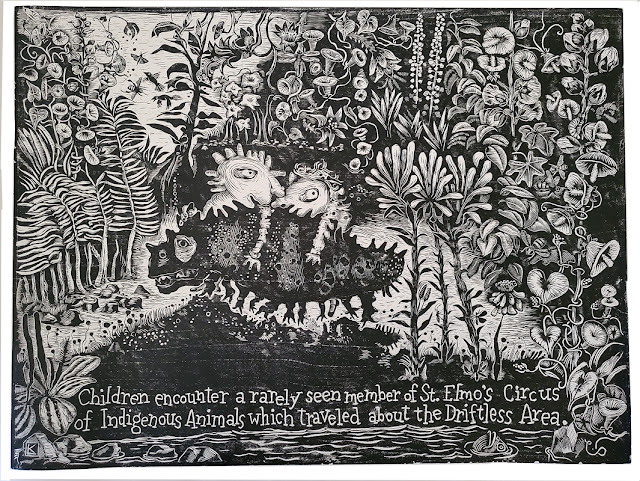 Children encounter a rarely seen member of St. Elmo's Circus
of Indigenous Animals which traveled about the Driftless Area.